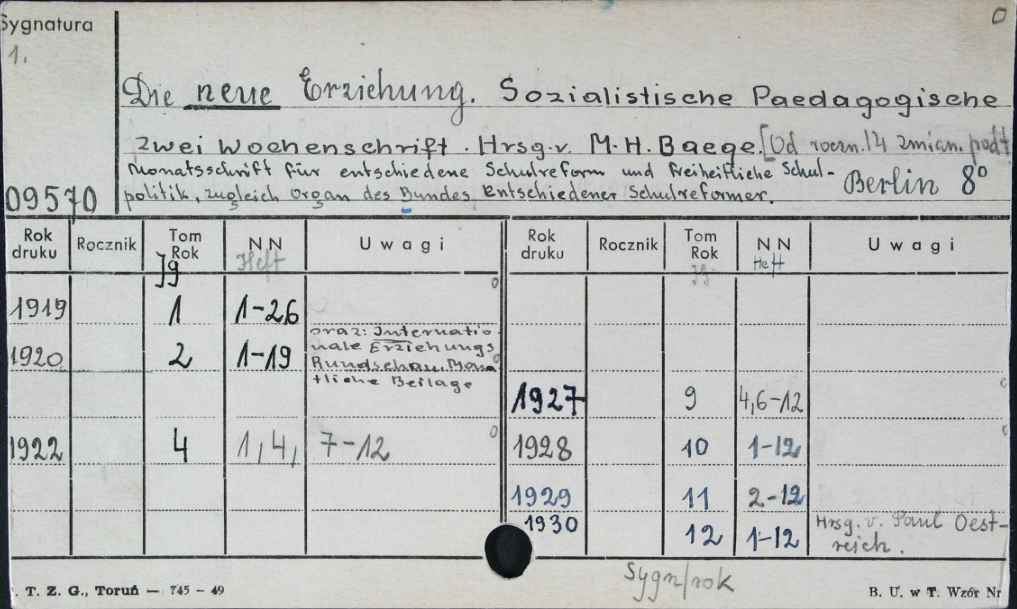 Sygnatura
1.
0
Die neue Erziehung. Sozialistische Paedagogische
zwei Wochenschrift. Hrsg. v. M. H. Baege. [Od roczn. 4 zmian. podt
Monatsschrift für entschiedene Schulreform und freiheitliche Schul-
politik, zugleich Organ des Bundes Entschiedener Schulreformer.
Berlin 8°
09570
Rok druku Rocznik Tom Rok NN Uwagi Rok druku Rocznik Tom Rok NN Uwagi
Jg Heft Jg Heft
1919 1 1-26
1920 2 1-19 oraz: Internatio-
nale Erziehungs
Rundschau. Mona
tliche Beilage
1927 9 4,6-12
1922 4 1,4, 7-12 1928 10 1-12
1929 11 2-12
1930 12 1-12 Hrsg. v. Paul Oest-
reich.
Sygn/rok
. T. Z. G., Toruń — 745 - 49
B. U. w T. Wzór Nr